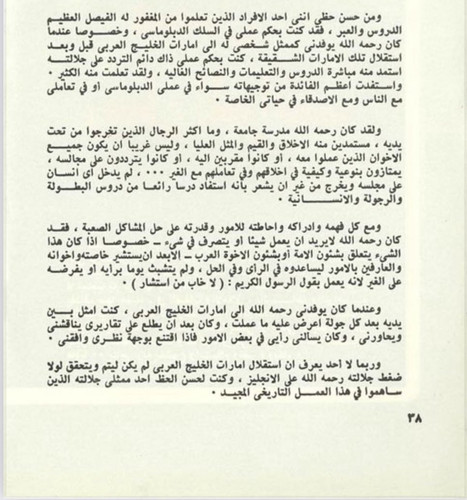 ومن حسن حظى اننى احد الافراد الذين تعلموا من المغفور له الفيصل العظيم
الدروس والعبر ، فقد كنت بحكم عملى في السلك الدبلوماسى ، وخصوصا عندما
كان رحمه الله يوفدنى كممثل شخصى له الى امارات الخليج العربى قبل وبعد
استقلال تلك الامارات الشقيقة ، كنت بحكم عملى ذاك دائم التردد على جلالته
استمد منه مباشرة الدروس والتعليمات والنصائح الغاليه ، ولقد تعلمت منه الكثير ٠
واستفدت اعظم الفائدة من توجيهاته سواء في عملى الدبلوماسى أو في تعاملى
مع الناس ومع الاصدقاء في حياتى الخاصة ٠
ولقد كان رحمه الله مدرسة جامعة ، وما اكثر الرجال الذين تخرجوا من تحت
يديه ، مستمدين منه الاخلاق والقيم والمثل العليا ، وليس غريبا ان يكون جميع
الاخوان الذين عملوا معه ، أو كانوا مقربين اليه ، أو كانوا يترددون على مجالسه ،
يمتازون بنوعية وكيفية في اخلاقهم وفي تعاملهم مع الغير ٠٠٠ ، لم يدخل أى انسان
على مجلسه ويخرج من غير ان يشعر بأنه استفاد درسا رائعا من دروس البطولة
والرجولة والانسانية ٠
ومع كل فهمه وادراكه واحاطته للامور وقدرته على حل المشاكل الصعبة ، فقد
كان رحمه الله لايريد ان يعمل شيئا أو يتصرف في شىء ــ خصوصا اذا كان هذا
الشىء يتعلق بشئون الامة أوبشئون الاخوة العرب ــ الابعد ان يستشير خاصته واخوانه
والعارفين بالامور ليساعدوه في الرأى وفي الحل ، ولم يتشبث يوما برأيه أو يفرضه
على الغير لانه يعمل بقول الرسول الكريم : ( لا خاب من استشار ) ٠
وعندما كان يوفدنى رحمه الله الى امارات الخليج العربى ، كنت امثل بين
يديه بعد كل جولة اعرض عليه ما عملت ، وكان بعد ان يطلع على تقاريرى يناقشنى
ويحاورنى ، وكان يسألنى رأيى في بعض الامور فاذا اقتنع بوجهة نظرى وافقنى ٠
وربما لا أحد يعرف ان استقلال امارات الخليج العربى لم يكن ليتم ويتحقق لولا
ضغط جلالته رحمه الله على الانجليز ، وكنت لحسن الحظ احد ممثلى جلالته الذين
ساهموا في هذا العمل التاريخى المجيد ٠
٣٨